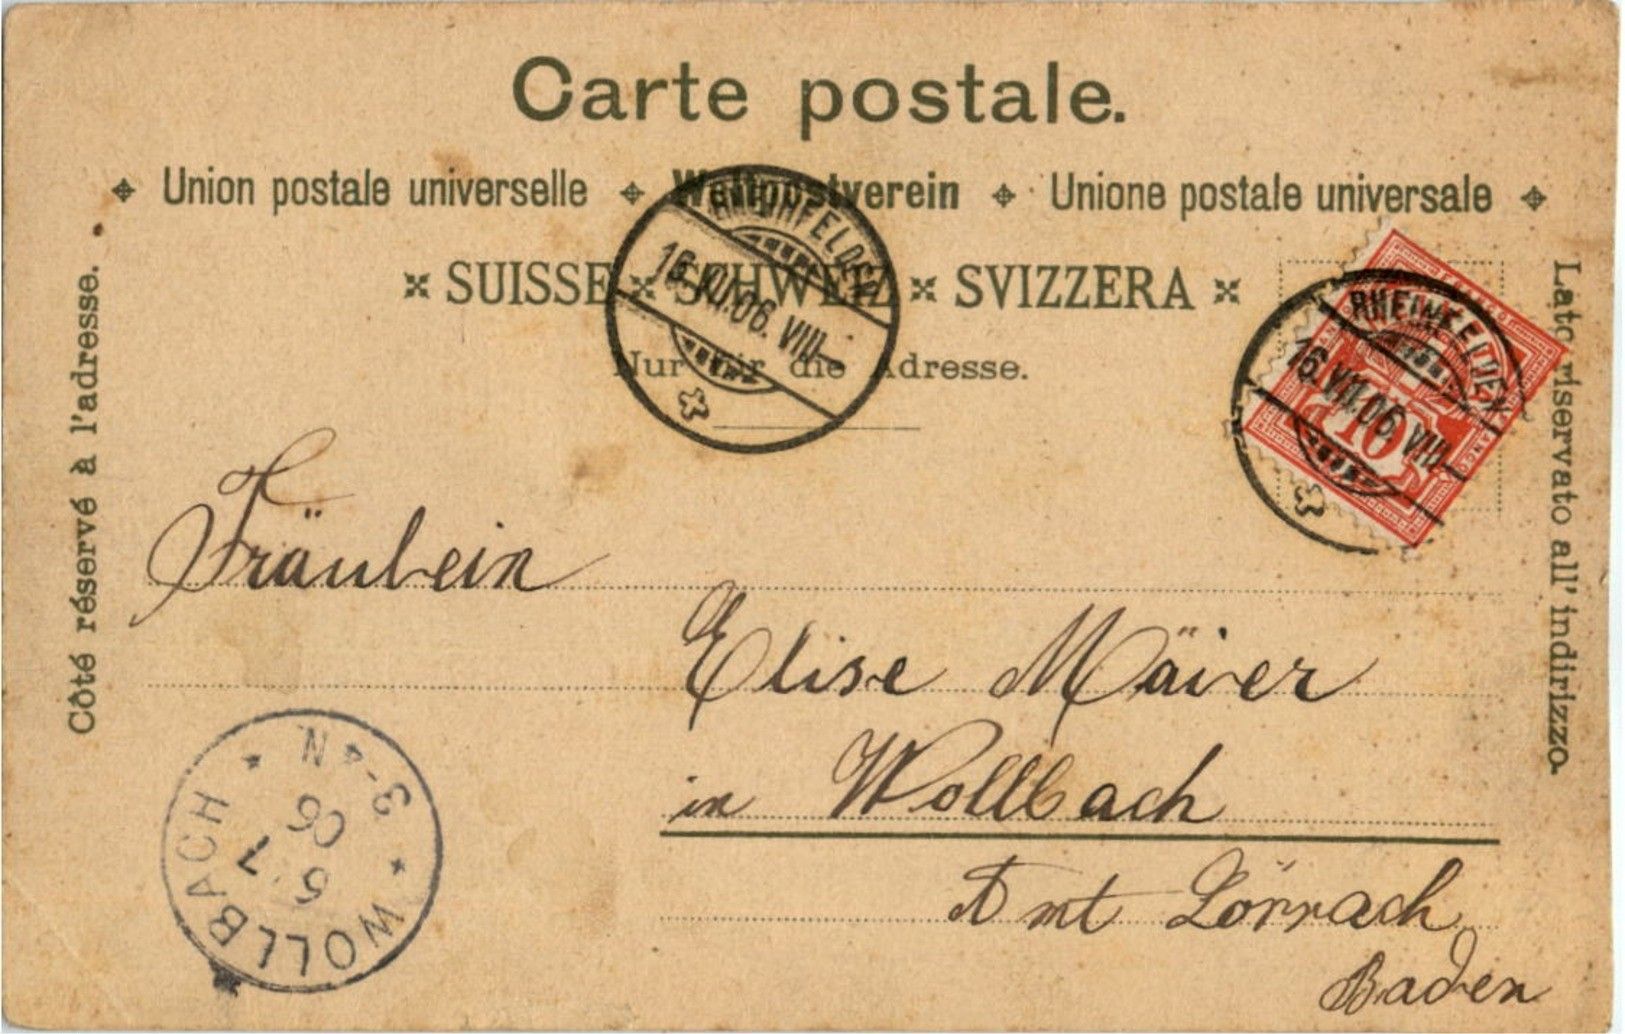 Carte postale.
Union postale universelle Weltpostverein Unione postale universale
SUISSE SCHWEIZ SVIZZERA
Nur für die Adresse.
Côté réservé à l'adresse.
Lato riservato all' indirizzo.
RHEINFELDEN
16.VII.06.VIII
RHEINFELDEN
16.VII.06.VIII
10
Fräulein
Elise Mäier
in Wollbach
Amt Lörrach
Baden
WOLLBACH
3-4N
06